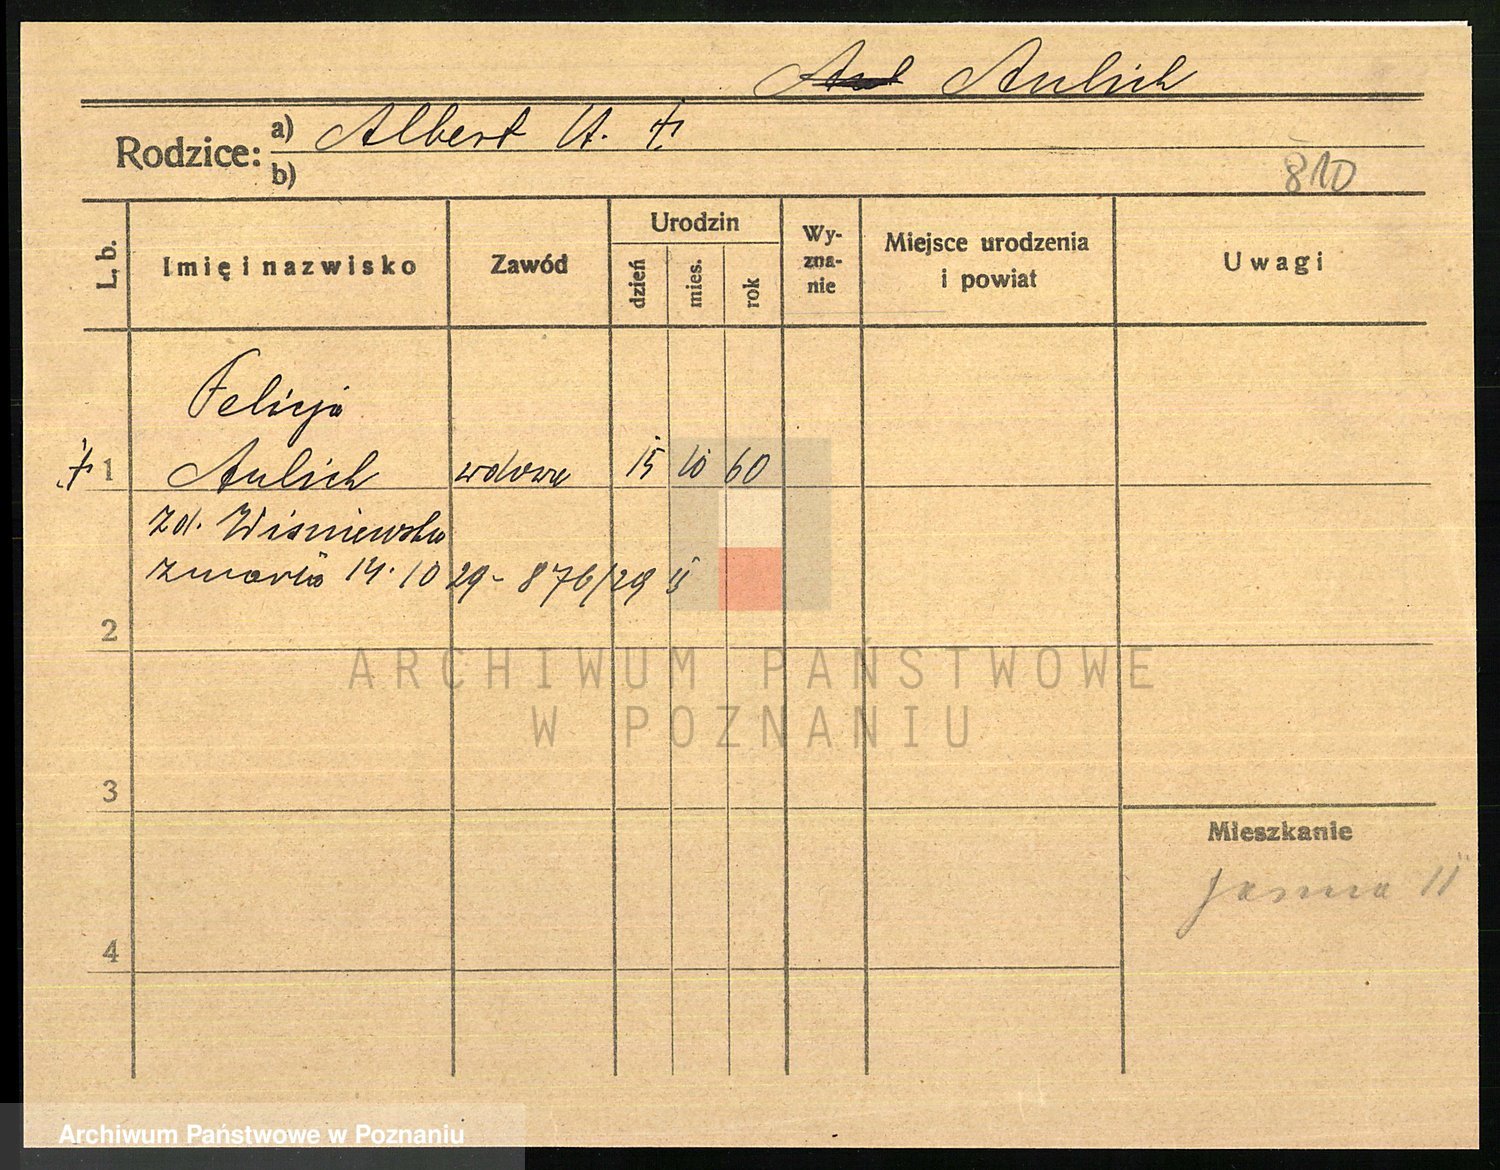 Aul Aulich
Rodzice: a) Albert A. †
b)
810
L. b.
Imię i nazwisko
Zawód
Urodzin
dzień
mies.
rok
Wy-
zna-
nie
Miejsce urodzenia
i powiat
Uwagi
Felicja
† 1 Aulich wdowa 15 10 60
zd. Wiśniewska
zmarła 14.10 29 - 876/29 II
2
ARCHIWUM PAŃSTWOWE
W POZNANIU
3
Mieszkanie
Jasna 11
4
Archiwum Państwowe w Poznaniu